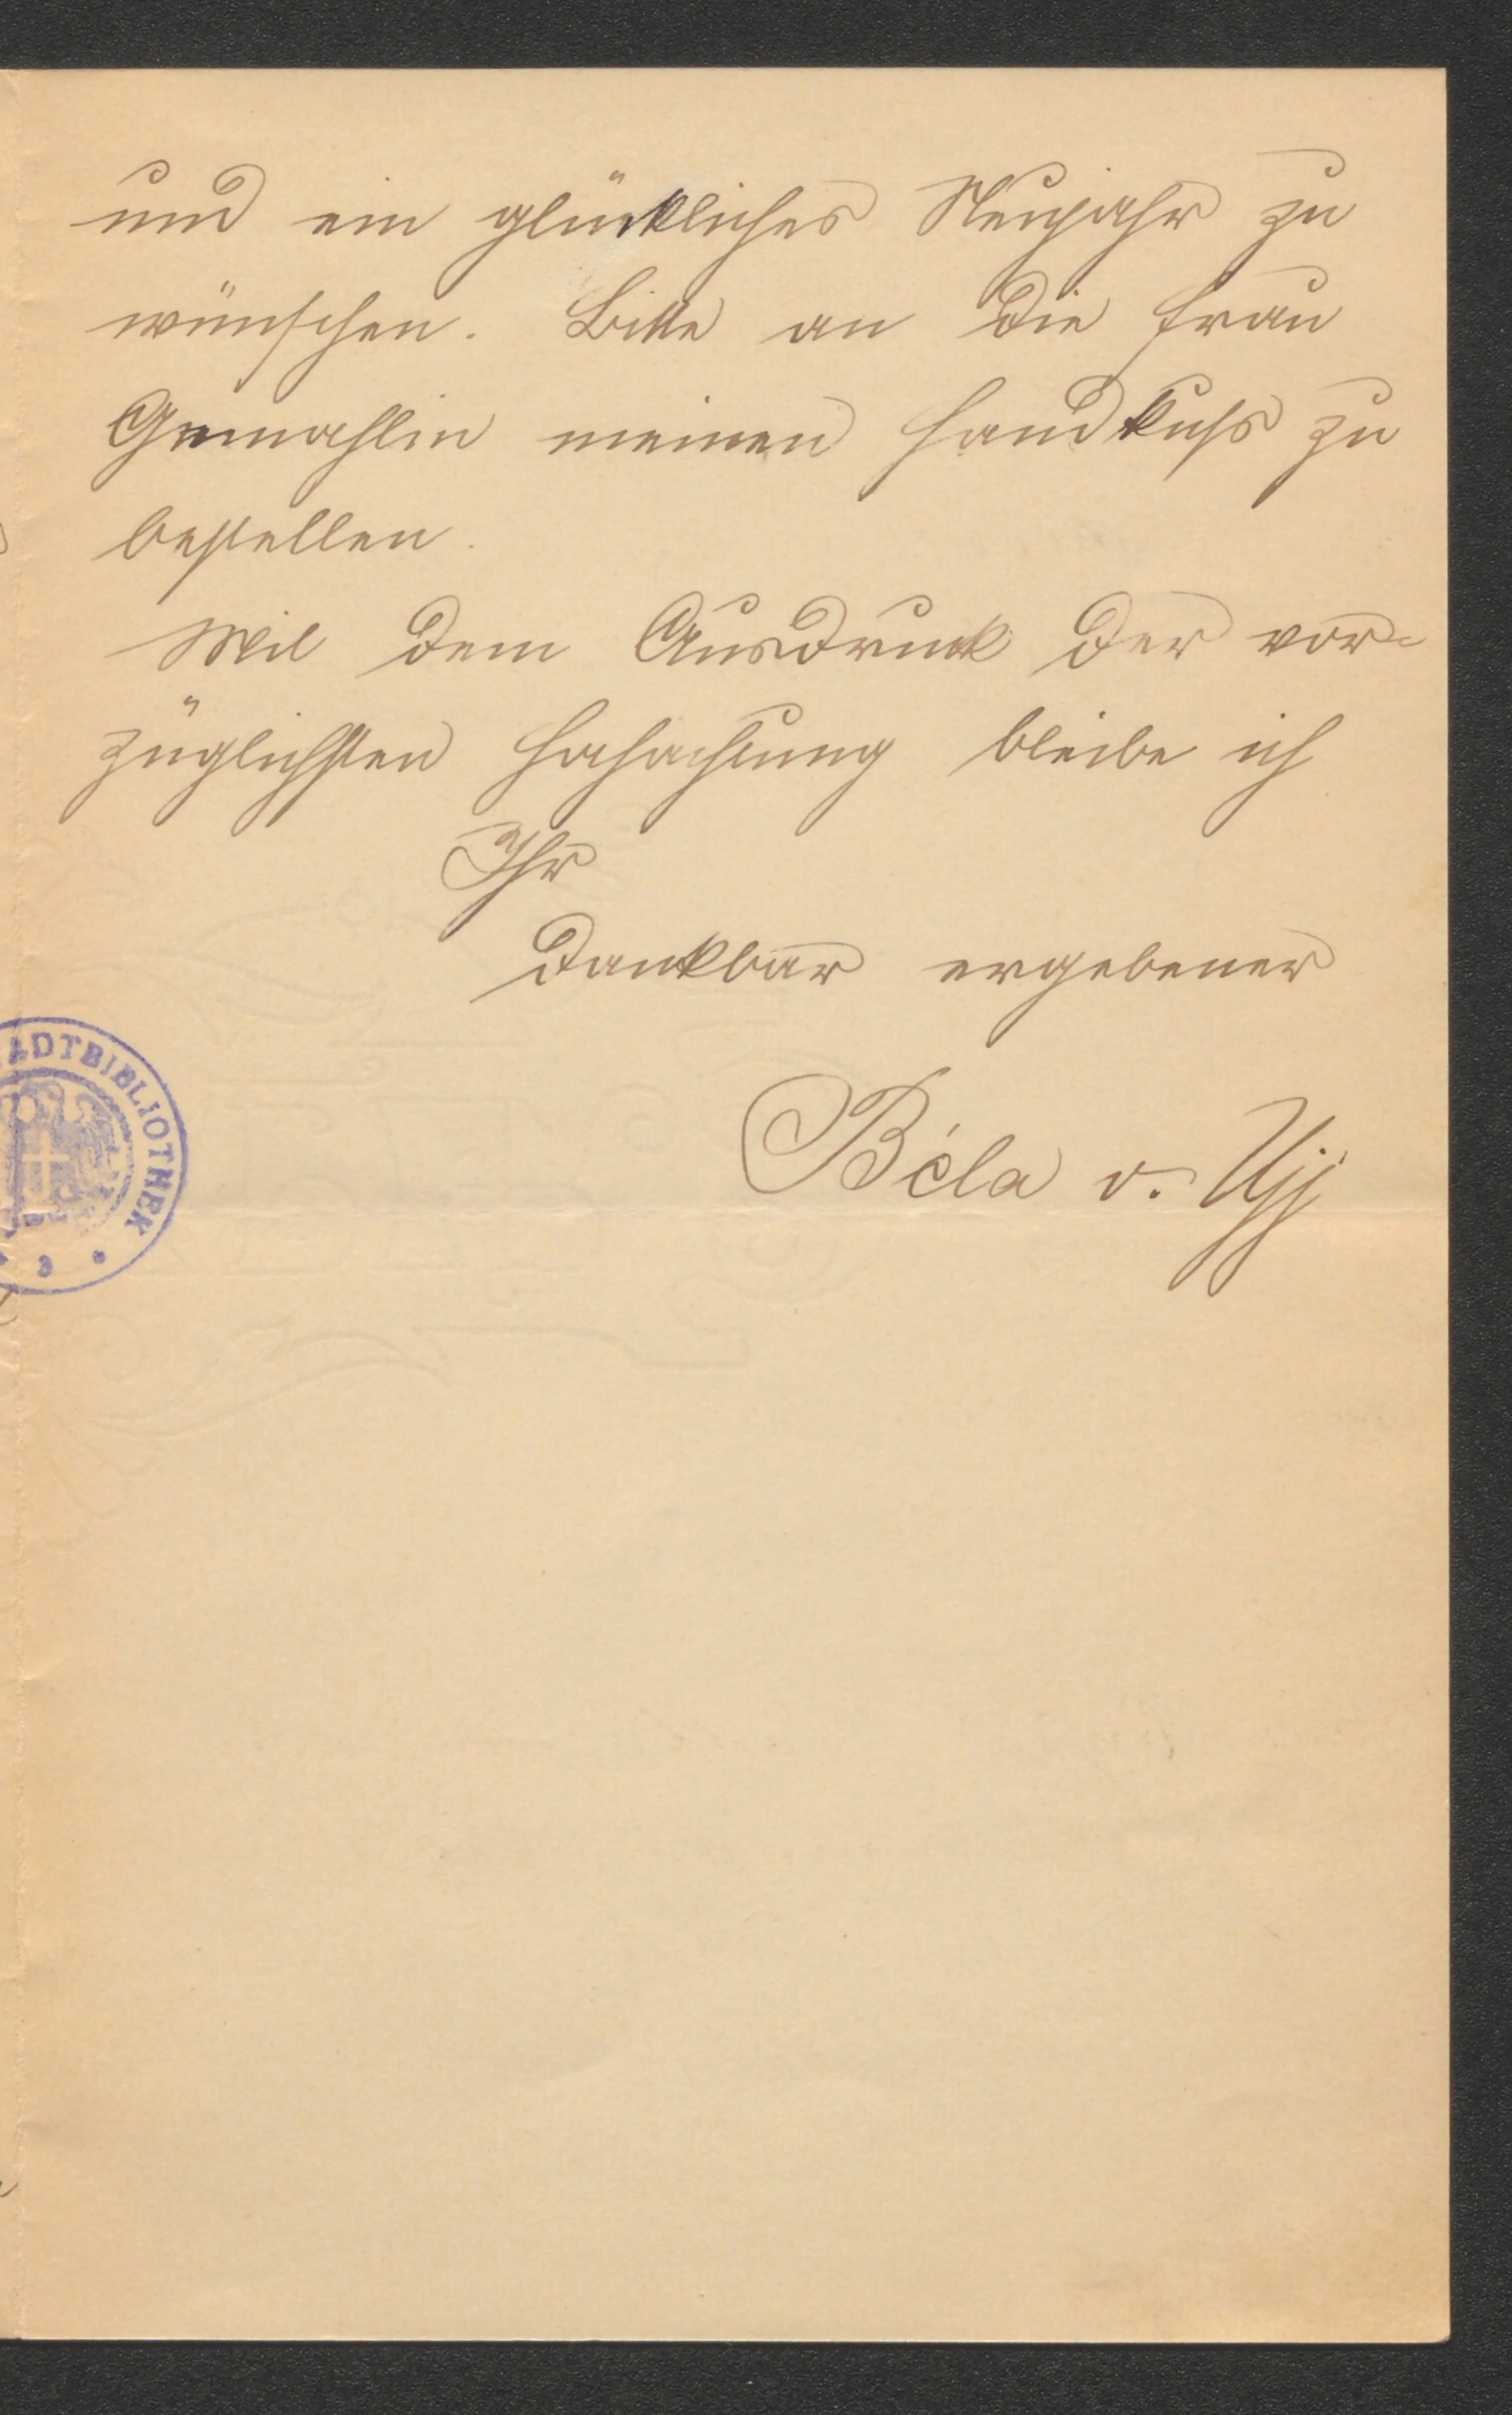 und ein glückliches Neujahr zu
wünschen. Bitte an die Frau
Gemahlin meinen Handkuss zu
bestellen.
Mit dem Ausdruck der vor-
züglichsten Hochachtung bleibe ich
Ihr
dankbar ergebener
Béla v. Ujj
ADTBIBLIOTHEK